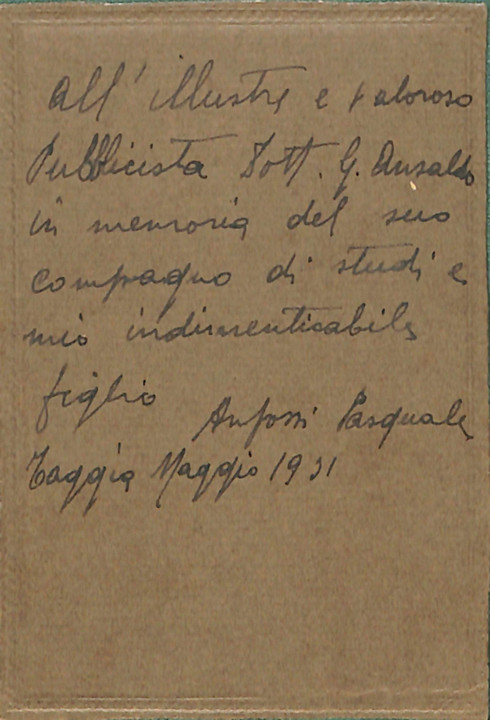 All' illustre e valoroso
Pubblicista Dott. G. Ansaldo
in memoria del suo
compagno di studi e
mio indimenticabile
figlio
Anfossi Pasquale
Taggia Maggio 1931